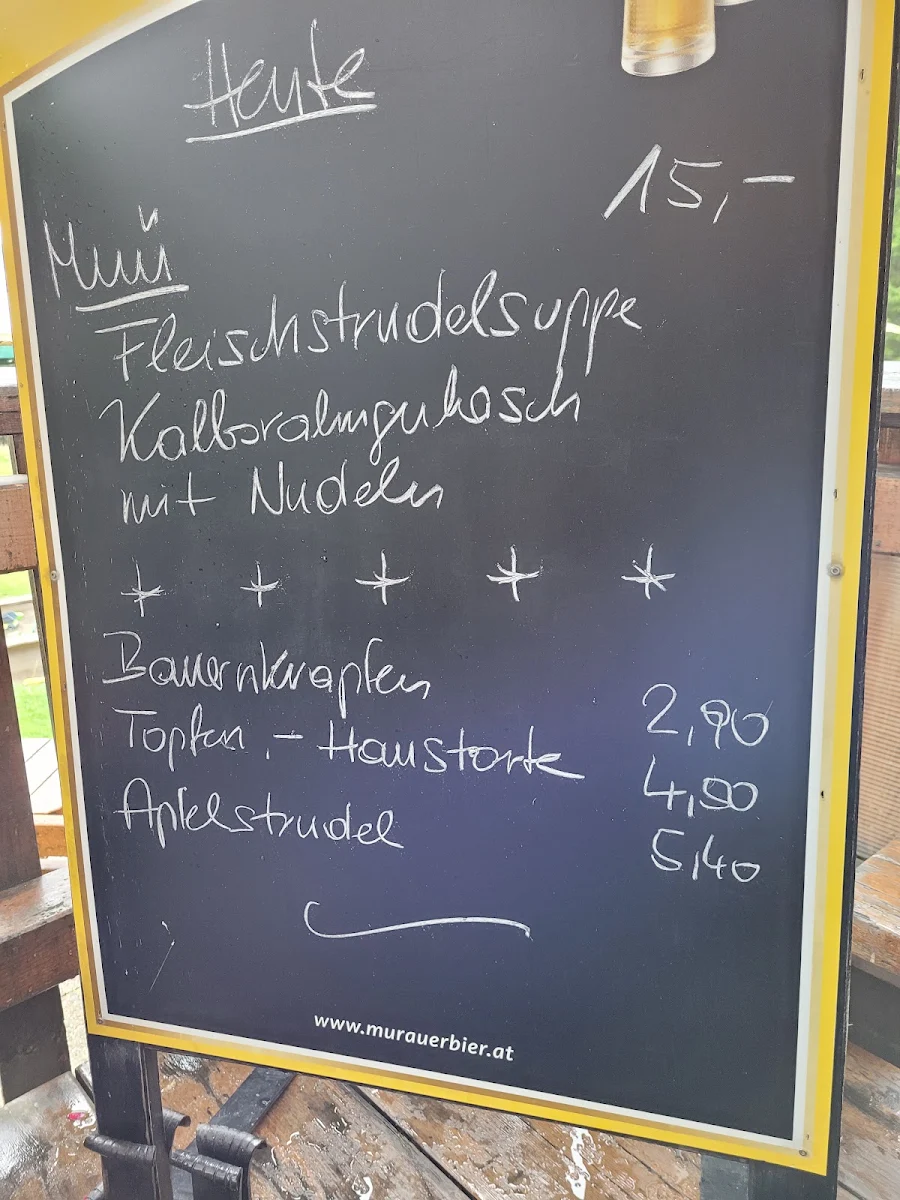 Heute
15,-
Menü
Fleischstrudelsuppe
Kalbsrahmgulasch
mit Nudeln
Bauernkrapfen 2,90
Topfen,- Haustorte 4,90
Apfelstrudel 5,40
www.murauerbier.at